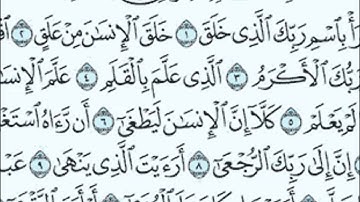 رَأْ بِٱسْمِ رَبِّكَ ٱلَّذِى خَلَقَ ١ خَلَقَ ٱلْإِنسَٰنَ مِنْ عَلَقٍ ٢ ٱقْ
بُّكَ ٱلْأَكْرَمُ ٣ ٱلَّذِى عَلَّمَ بِٱلْقَلَمِ ٤ عَلَّمَ ٱلْإِنسَٰ
لَمْ يَعْلَمْ ٥ كَلَّآ إِنَّ ٱلْإِنسَٰنَ لَيَطْغَىٰٓ ٦ أَن رَّءَاهُ ٱسْتَغْ
إِنَّ إِلَىٰ رَبِّكَ ٱلرُّجْعَىٰٓ ٨ أَرَءَيْتَ ٱلَّذِى يَنْهَىٰ ٩ عَبْ